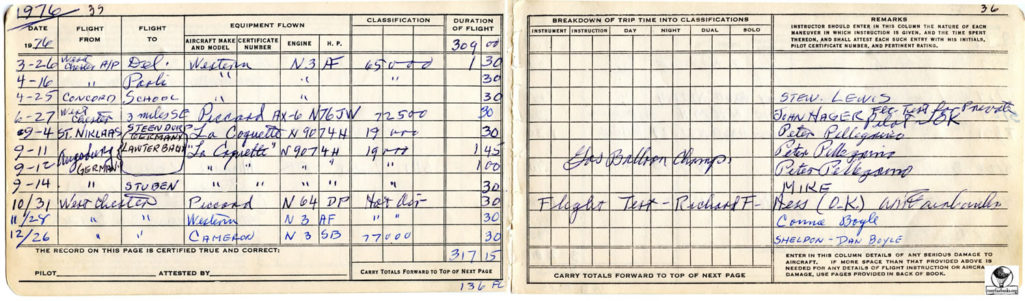 1976 35
DATE
FLIGHT FROM
FLIGHT TO
EQUIPMENT FLOWN
AIRCRAFT MAKE AND MODEL
CERTIFICATE NUMBER
ENGINE
H. P.
CLASSIFICATION
DURATION OF FLIGHT
1976 309 00
3-26 West Chester A/P Del. Western N3AF 65000 1 30
4-16 " Paoli " " " 30
4-25 CONCORD SCHOOL " " " 30
6-27 West Chester 3 miles SE Piccard AX-6 N76JW 72500 30
9-4 ST. NIKLAAS La Coquette N9074H 19000 30
9-11 Augsburg GERMANY LAWTERBACH "La Coquette" N9074H 19000 1 45
9-12 " " " " 1 00
9-14 " STUBEN " " " " 30
10/31 West Chester Piccard N64DP Hot Air 30
11/28 " " Western N3AF " " 30
12/26 " " CAMERON N3SB 77000 30
THE RECORD ON THIS PAGE IS CERTIFIED TRUE AND CORRECT:
317 15
PILOT ATTESTED BY
CARRY TOTALS FORWARD TO TOP OF NEXT PAGE
136 FL
36
BREAKDOWN OF TRIP TIME INTO CLASSIFICATIONS
INSTRUMENT INSTRUCTION DAY NIGHT DUAL SOLO
REMARKS
INSTRUCTOR SHOULD ENTER IN THIS COLUMN THE NATURE OF EACH
MANEUVER IN WHICH INSTRUCTION IS GIVEN, AND THE TIME SPENT
THEREON, AND SHALL ATTEST EACH SUCH ENTRY WITH HIS INITIALS,
PILOT CERTIFICATE NUMBER, AND PERTINENT RATING.
STEW. LEWIS
JOHN HAGER Test for Private
Pilot - OK
Peter Pellegrino
Gas Balloon Champ. Peter Pellegrino
Peter Pellegrino
MIKE
Flight Test - Richard F- Ness (O-K)
Connie Boyle
SHELDON - DAN BOYLE
CARRY TOTALS FORWARD TO TOP OF NEXT PAGE
ENTER IN THIS COLUMN DETAILS OF ANY SERIOUS DAMAGE TO
AIRCRAFT. IF MORE SPACE THAN THAT PROVIDED ABOVE IS
NEEDED FOR ANY DETAILS OF FLIGHT INSTRUCTION OR AIRCRA
DAMAGE, USE PAGES PROVIDED IN BACK OF BOOK.